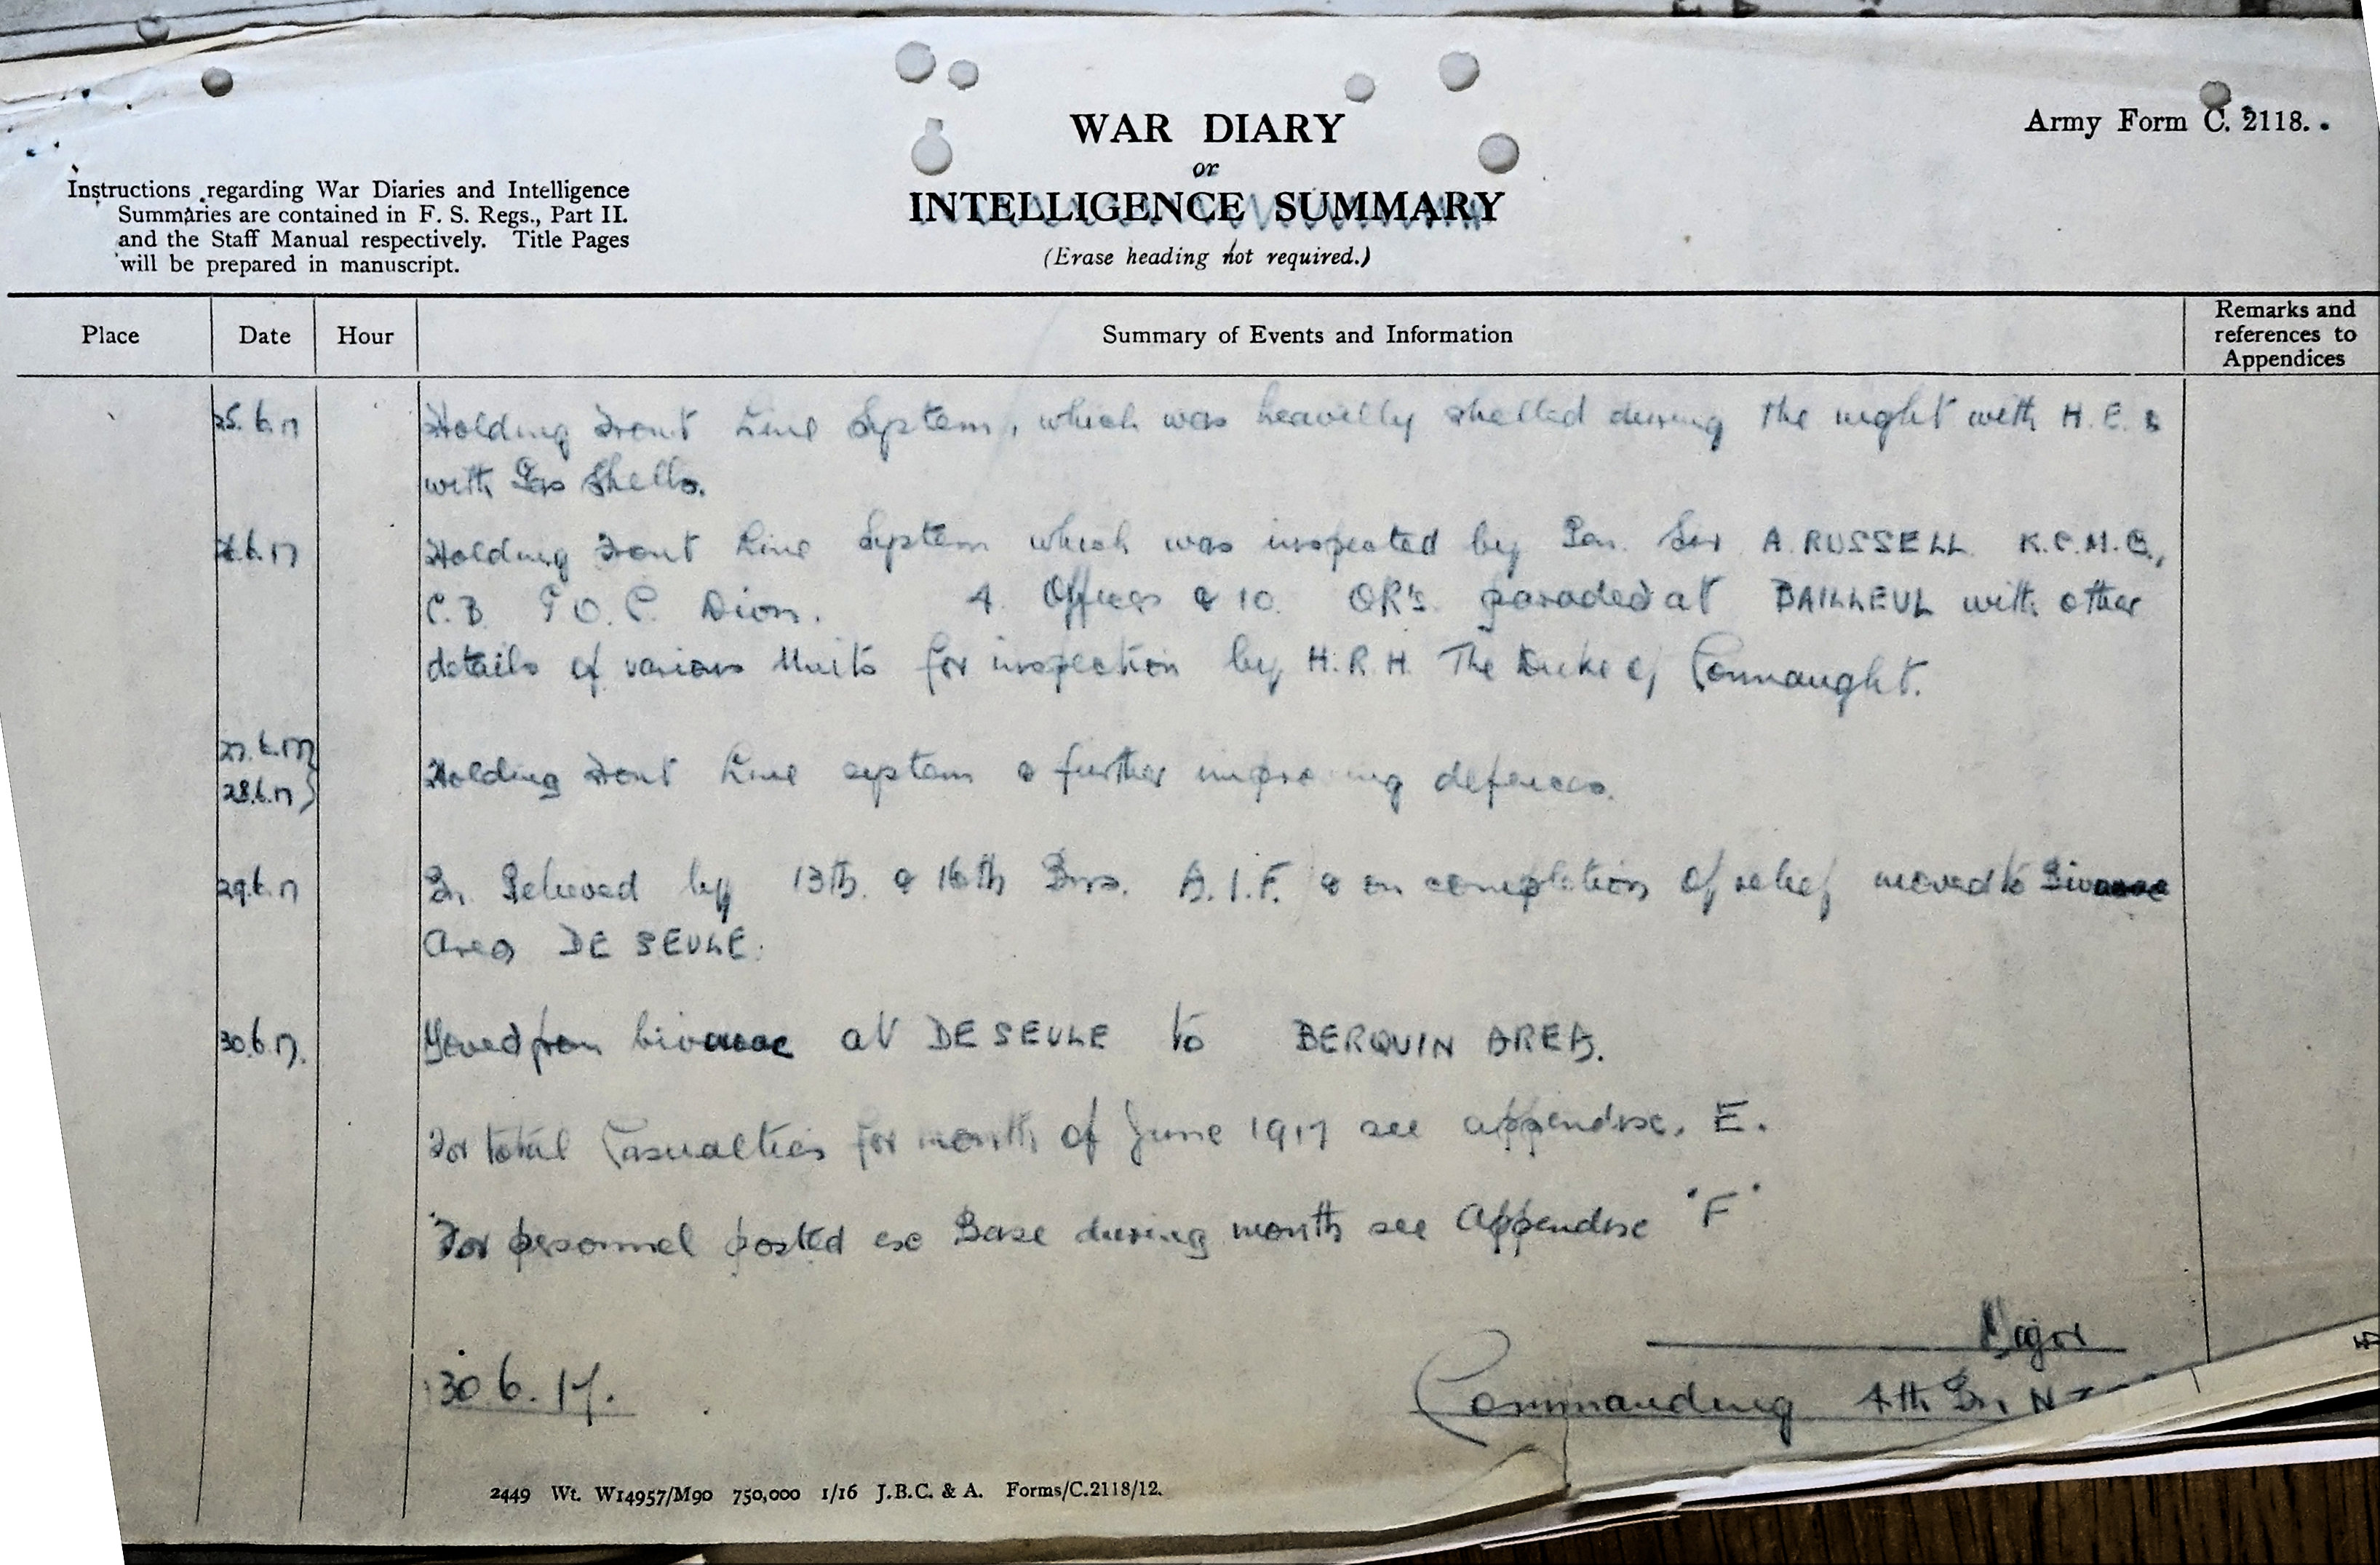 Army Form C. 2118.
WAR DIARY
or
INTELLIGENCE SUMMARY
(Erase heading not required.)
Instructions regarding War Diaries and Intelligence
Summaries are contained in F. S. Regs., Part II.
and the Staff Manual respectively. Title Pages
will be prepared in manuscript.
Place Date Hour Summary of Events and Information Remarks and references to Appendices
25.6.17 Holding Front Line System, which was heavilly shelled during the night with H.E. &
with Gas Shells.
26.6.17 Holding Front Line System which was inspected by Gen. Sir A. RUSSELL K.C.M.G.,
C.B. G.O.C. Divn. 4 Officers & 10 OR's. paraded at BAILLEUL with other
details of various Units for inspection by H.R.H. The Duke of Connaught.
27.6.17
28.6.17 Holding Front Line system & further improving defences.
29.6.17 Bn. Relieved by 13th. & 16th Bns. A.I.F. & on completion of relief moved to Bivouac
Area DE SEULE.
30.6.17. Moved from bivouac at DE SEULE to BERQUIN AREA.
For total Casualties for month of June 1917 see appendix. E.
For personnel posted ex Base during month see Appendix "F"
Major
30.6.17. Commanding 4th Bn. N Z
2449 Wt. W14957/M90 750,000 1/16 J.B.C. & A. Forms/C.2118/12.